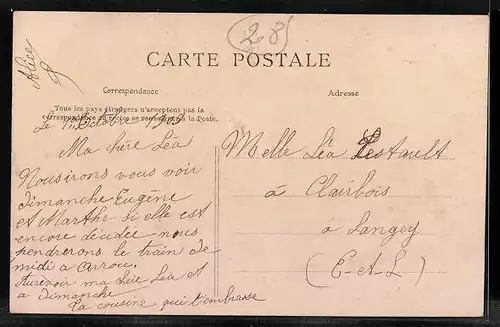 28
Alice
CARTE POSTALE
Correspondance
Adresse
Tous les pays étrangers n'acceptent pas la
correspondance au recto se renseigner à la Poste.
Le
Ma chère Léa
Nousirons vous voir
dimanche Eugène
et Marthe si elle est
encore décidée nous
pendrerons le train de
midi a arrou
Aurevoir ma chère Léa et
a Dimanche
Ta cousine qui t'embrasse
Melle Léa Lestault
à Clairbois
à Langey
(E-A-L)